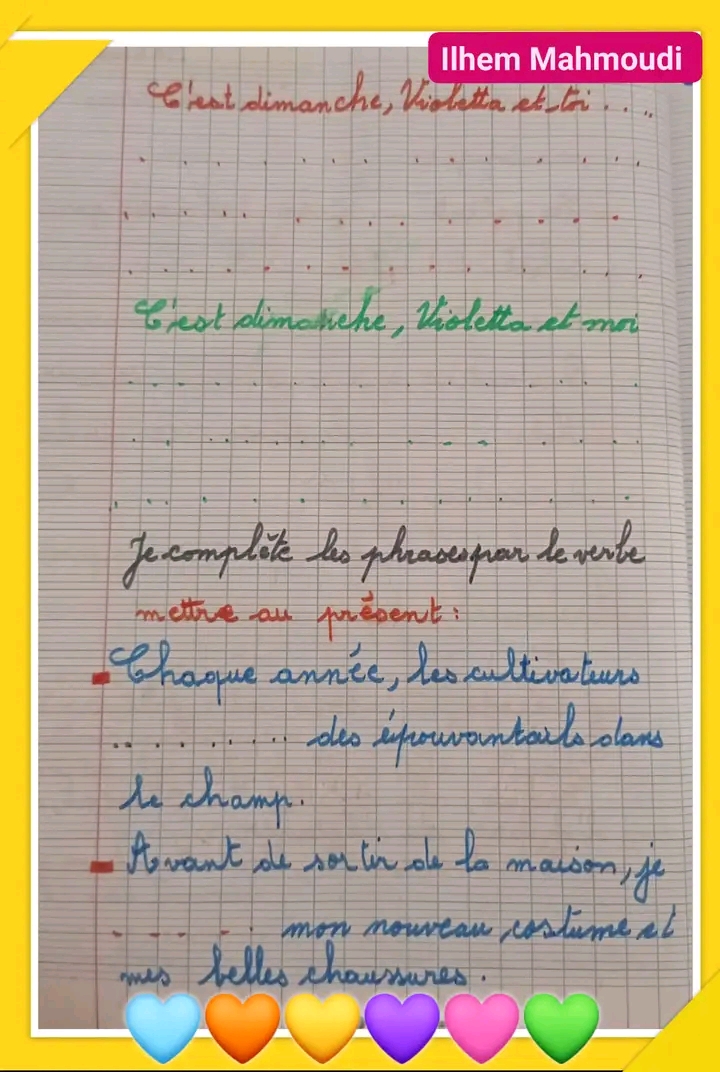 Ilhem Mahmoudi
C'est dimanche, Violetta et toi . . . .
C'est dimanche, Violetta et moi
Je complète les phrases par le verbe
mettre au présent :
Chaque année, les cultivateurs
. . . . . . . . . des épouvantails dans
le champ.
Avant de sortir de la maison, je
. . . . . . mon nouveau costume et
mes belles chaussures.